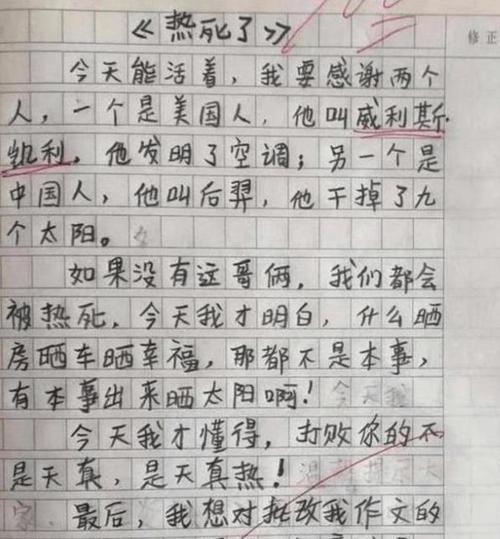 《热死了》
修正
今天能活着，我要感谢两个
人，一个是美国人，他叫威利斯·
凯利，他发明了空调；另一个是
中国人，他叫后羿，他干掉了九
个太阳。
如果没有这哥俩，我们都会
被热死，今天我才明白，什么晒
房晒车晒幸福，那都不是本事，
有本事出来晒太阳啊！
今天我才懂得，打败你的不
是天真，是天真热！
最后，我想对批改我作文的